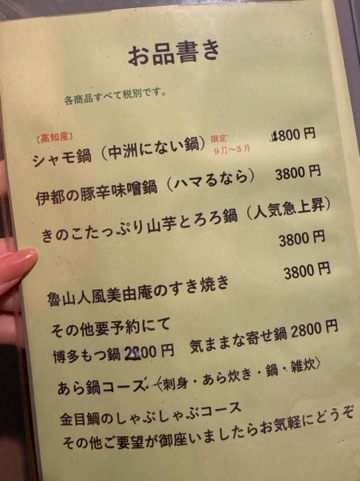 お品書き
各商品すべて税別です。
[高知産]
シャモ鍋(中洲にない鍋) 限定 9月~3月 4800円
伊都の豚辛味噌鍋(ハマるなら) 3800円
きのこたっぷり山芋とろろ鍋(人気急上昇)
3800円
魯山人風美由庵のすき焼き 3800円
その他要予約にて
博多もつ鍋 2200円 気ままな寄せ鍋 2800円
あら鍋コース-(刺身・あら炊き・鍋・雑炊〉
金目鯛のしゃぶしゃぶコース
その他ご要望が御座いましたらお気軽にどうぞ